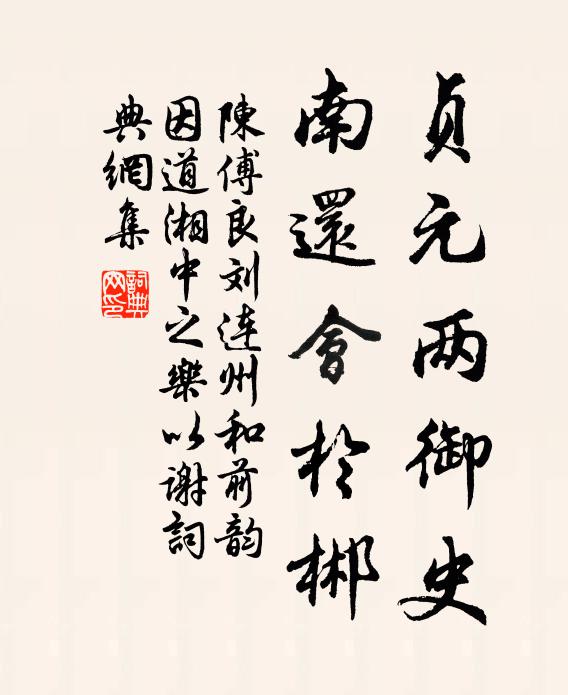 贞元两御史
南還會於郴
陳傅良刘连州和前韵
因道湘中之樂以谢詞
典網集
詞典
网印